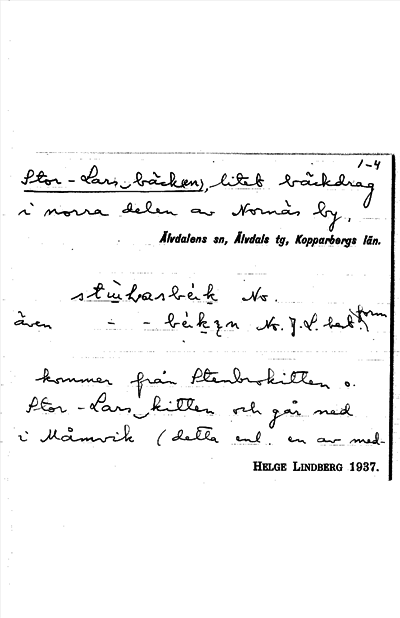 1-4
Stor-Lars_bäck(en), litet bäckdrag
i norra delen av Nornäs by.
Älvdalens sn, Älvdals tg, Kopparbergs län.
No.
även - - No. J. L. best. form
kommer från Stenbrokitten o.
Stor-Lars_kitten och går ned
i Måmvik (detta enl. en av med-
HELGE LINDBERG 1937.